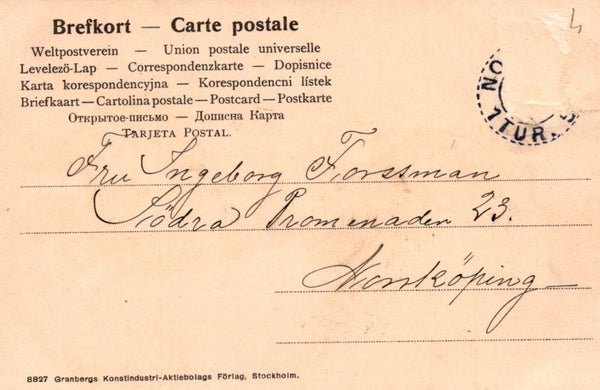 Brefkort — Carte postale
Weltpostverein — Union postale universelle
Levelező-Lap — Correspondenzkarte — Dopisnice
Karta korespondencyjna — Korespondencni lístek
Briefkaart — Cartolina postale — Postcard — Postkarte
Открытое-письмо — Дописна Карта
Tarjeta Postal.
4
NO
1TUR.
Fru Ingeborg Forssman
Södra Promenaden 23.
Norrköping
8827 Granbergs Konstindustri-Aktiebolags Förlag, Stockholm.